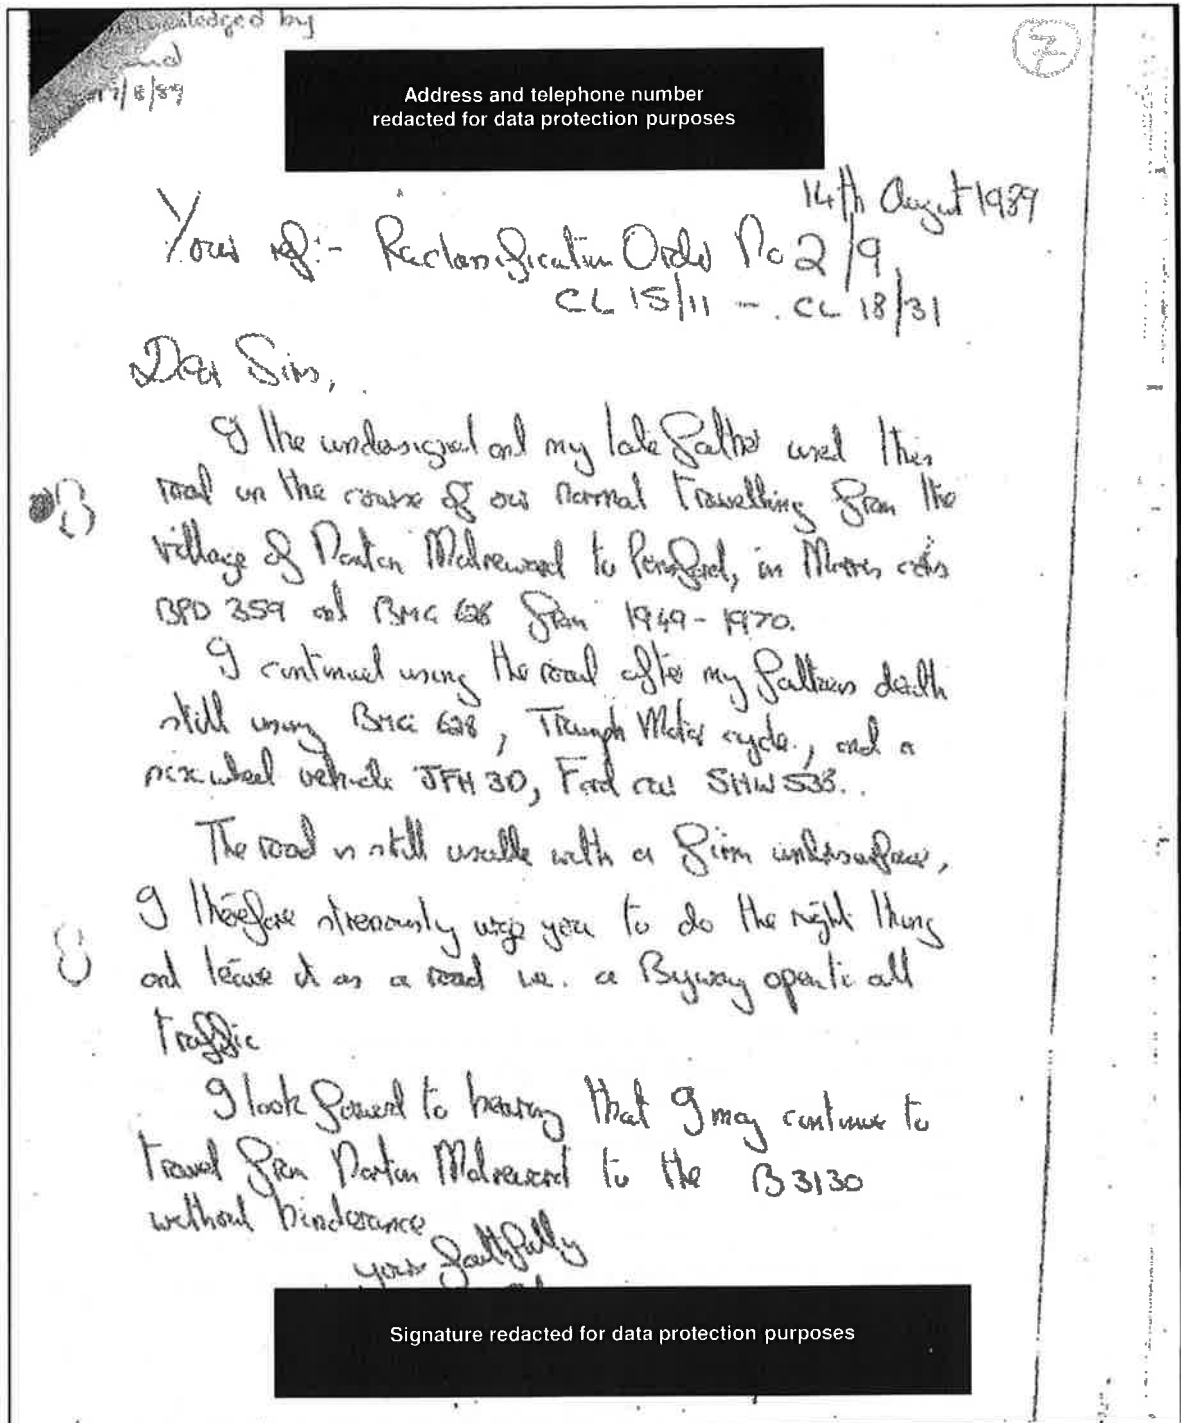 ledged by
7
17/8/89
Address and telephone number
redacted for data protection purposes
14th August 1989
Your ref:- Reclassification Order No 2/9
CL 15/11 - CL 18/31
Dear Sirs,
I the undersigned and my late father used this
road in the course of our normal travelling from the
village of Norton Malreward to Pensford, in Morris cars
BPD 359 and BMG 628 from 1949-1970.
I continued using the road after my fathers death
still using BMG 628, Triumph Motor cycle, and a
six wheel vehicle JFH 30, Ford car SHW 533..
The road is still usable with a firm undersurface,
I therefore strenously urge you to do the right thing
and leave it as a road i.e. a Byway open to all
traffic
I look forward to hearing that I may continue to
travel from Norton Malreward to the B3130
without hinderance
yours faithfully
Signature redacted for data protection purposes